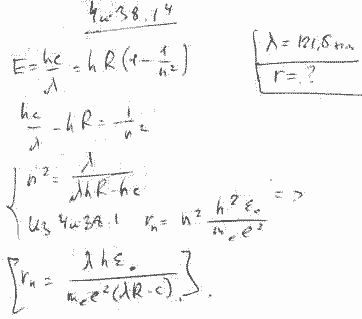 4и38.14
E = hc/λ = hR(1 - 1/n²)
λ = 121,5 нм
r = ?
hc/λ - hR = 1/n²
n² = λ/(λhR - hc)
Из 4и38.1 rₙ = n² h²ε₀/(mₑe²) =>
[rₙ = λhε₀/(mₑe²(λR - c))].